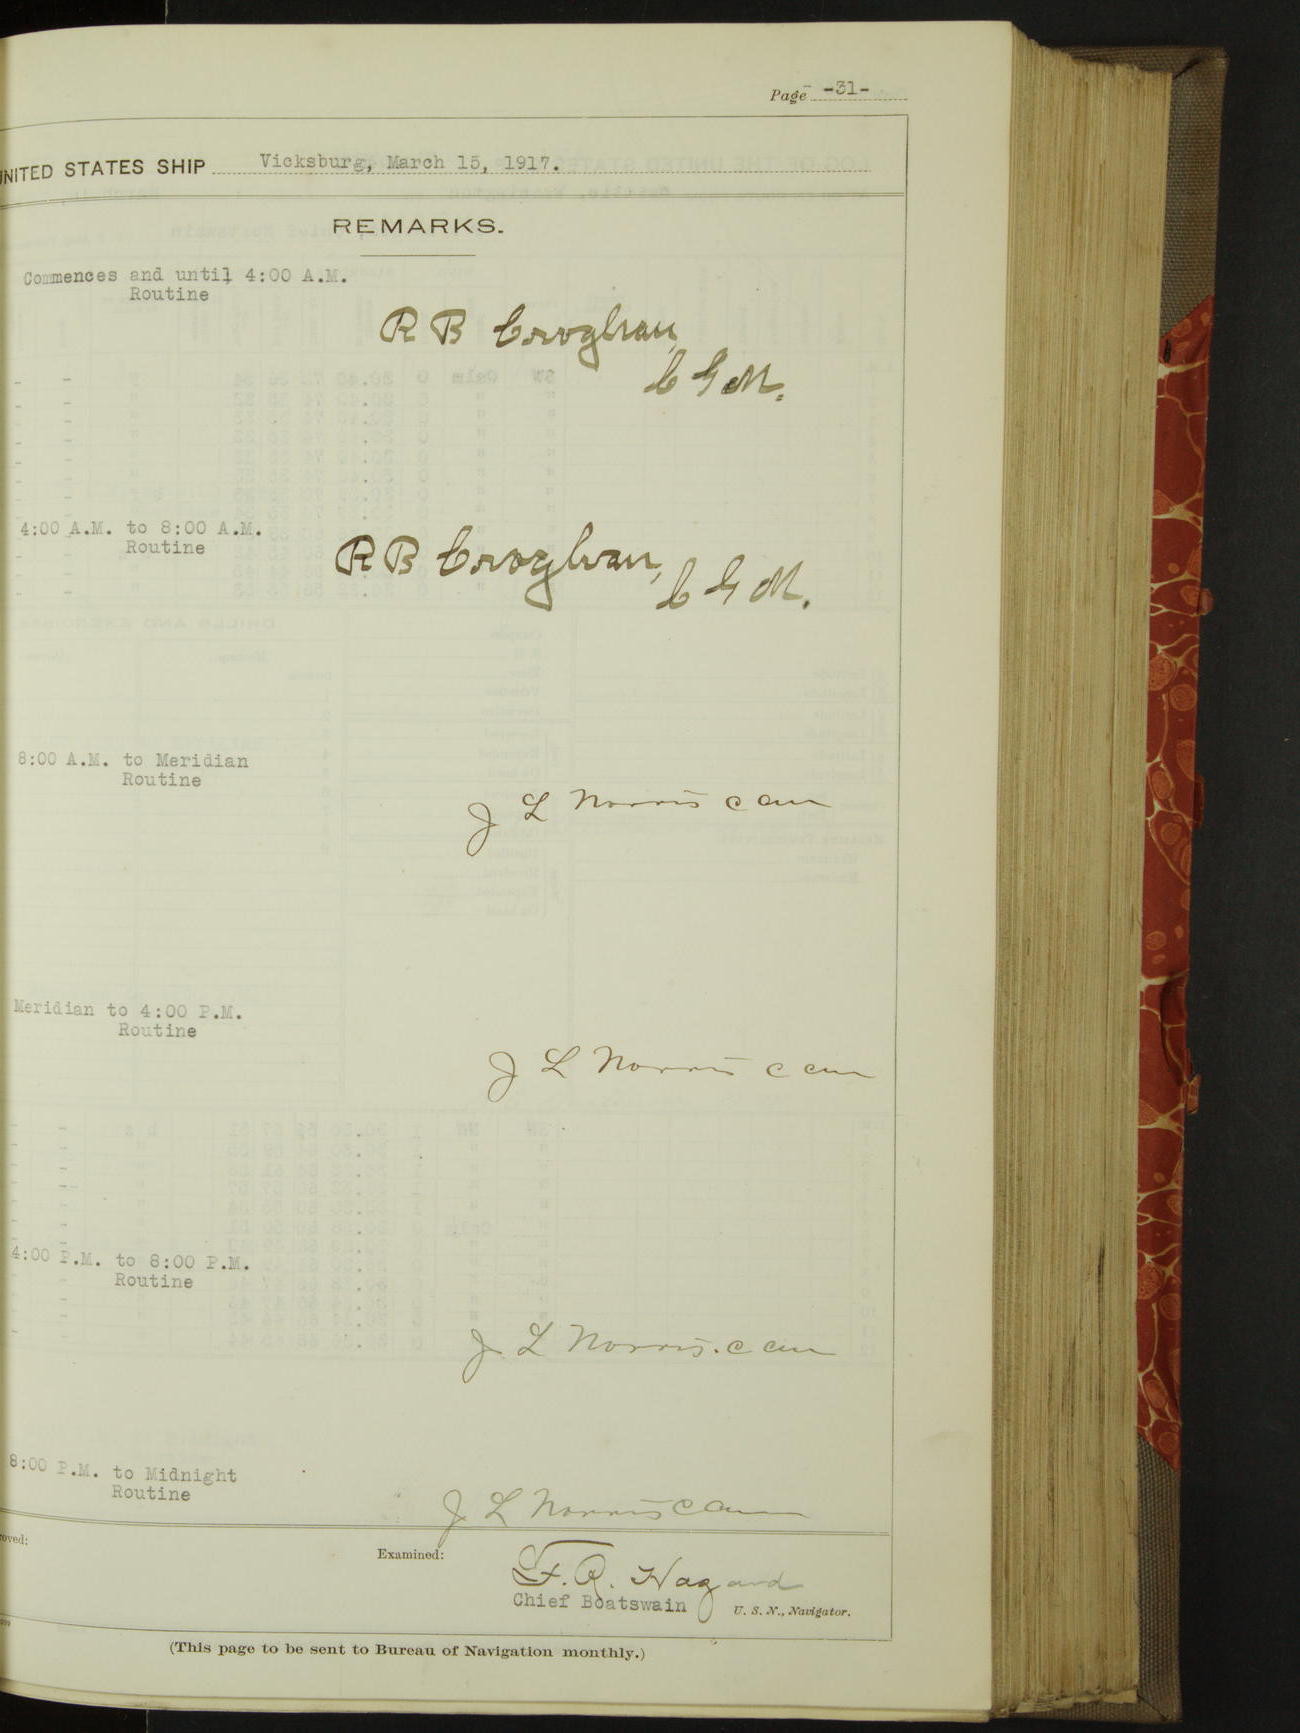 Page -31-
UNITED STATES SHIP Vicksburg, March 15, 1917.
REMARKS.
Commences and until 4:00 A.M.
Routine
R B Croghan,
C G M.
4:00 A.M. to 8:00 A.M.
Routine
R B Croghan,
C G M.
8:00 A.M. to Meridian
Routine
J L Norris
Meridian to 4:00 P.M.
Routine
J L Norris
4:00 P.M. to 8:00 P.M.
Routine
J L Norris.
8:00 P.M. to Midnight
Routine
J L Norris
roved:
Examined:
F. R. Hazard
Chief Boatswain U. S. N., Navigator.
(This page to be sent to Bureau of Navigation monthly.)